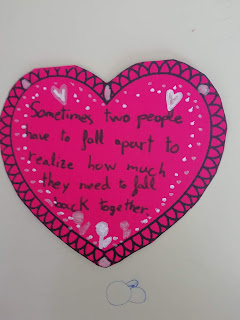 Sometimes two people
have to fall apart to
realize how much
they need to fall
back together